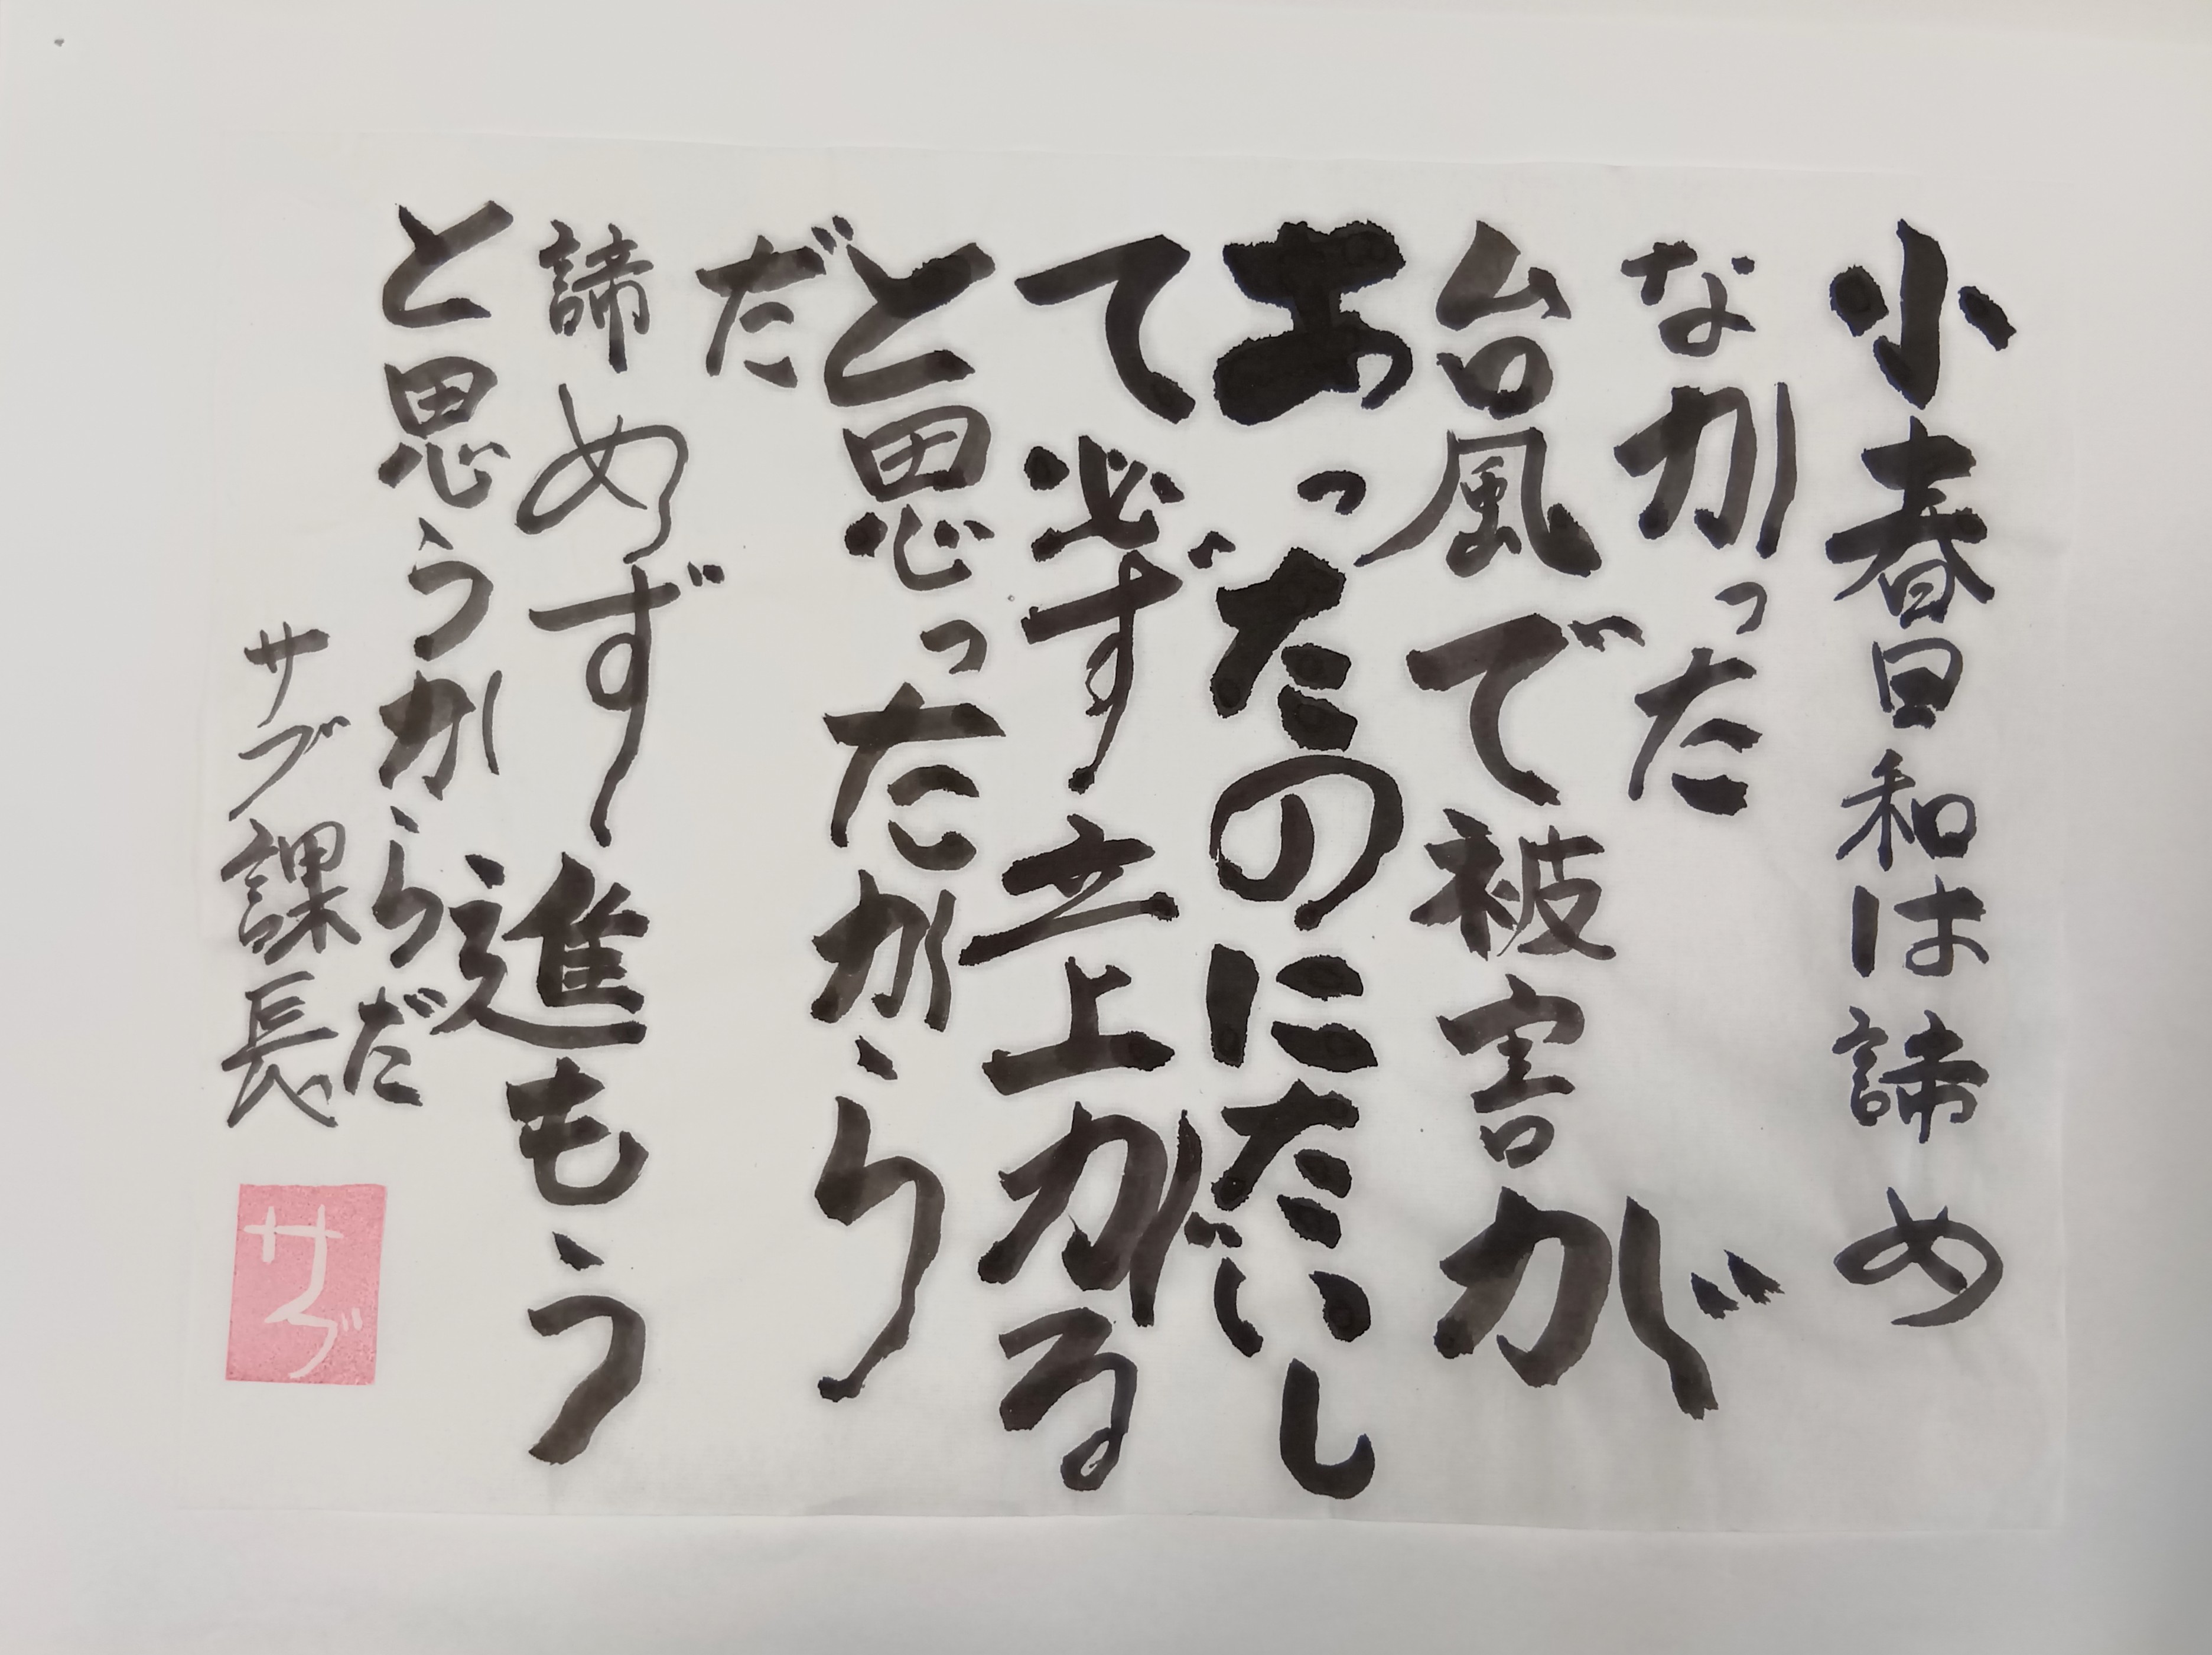 小春日和は諦め
なかった
台風で被害が
あったのにたいし
て必ず立上がる
と思ったから
だ
諦めず進もう
と思うからだ
サブ課長
サブ